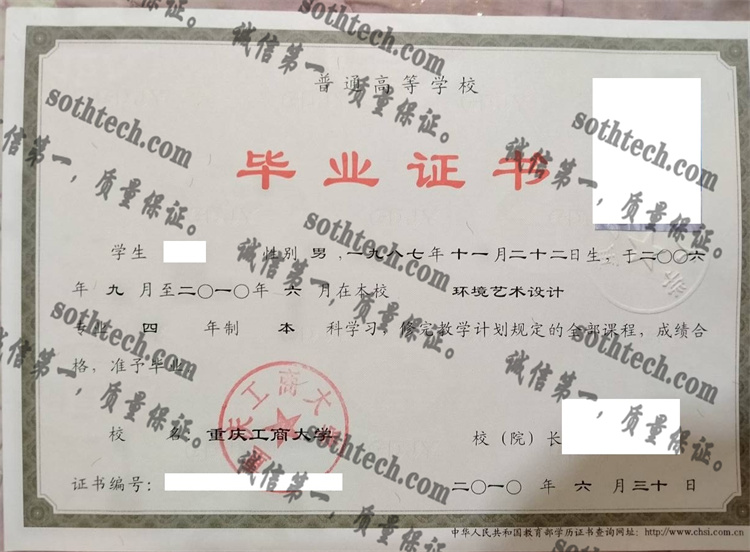 普通高等学校
毕业证书
学生 性别 男 ,一九八七年 十一月二十二日生,于二〇〇六
年 九 月至二〇一〇年 六 月在本校 环境艺术设计
专业 四 年制 本 科学习,修完教学计划规定的全部课程,成绩合
格,准予毕业。
校 名 重庆工商大学 校(院)长
证书编号: 二〇一〇 年 六 月 三十 日
中华人民共和国教育部学历证书查询网址: http://www.chsi.com.cn
重庆工商大学
sothtech.com
诚信第一,质量保证。
sothtech.com
诚信第一,质量保证。
sothtech.com
诚信第一,质量保证。
sothtech.com
诚信第一,质量保证。
sothtech.com
诚信第一,质量保证。
sothtech.com
诚信第一,质量保证。
sothtech.com
诚信第一,质量保证。
sothtech.com
诚信第一,质量保证。
sothtech.com
诚信第一,质量保证。